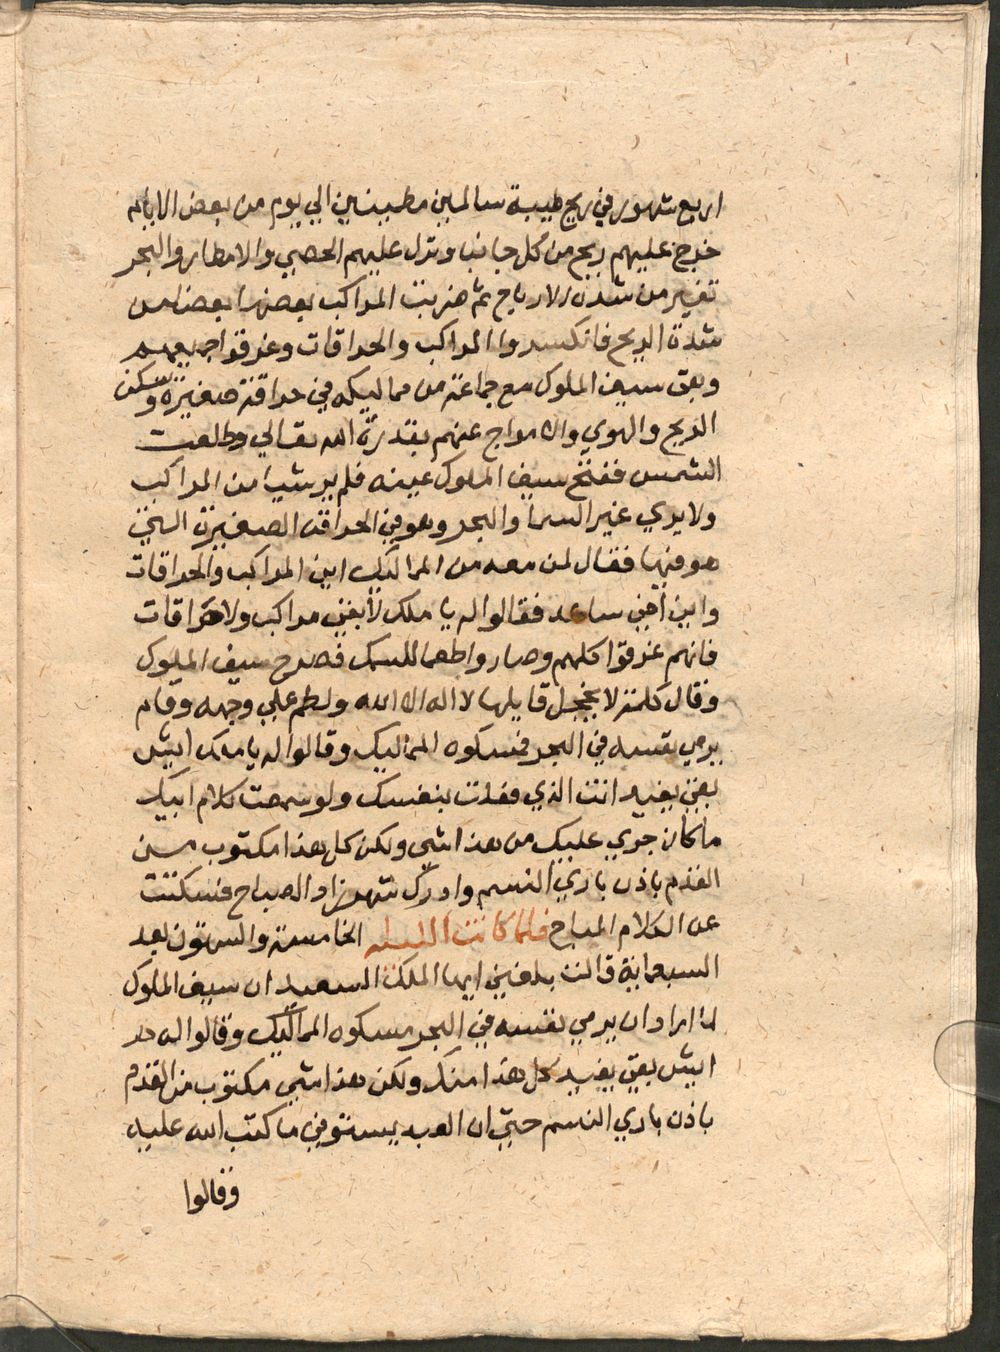 اربع شهور في ريح طيبة سالمين مطمينين الي يوم من بعض الايام
خرج عليهم ريح من كل جانبا ونزل عليهم الحصي والامطار والبحر
تغير من شدة الارياح ثم ضربت المراكب بعضها بعضا من
شدة الريح فانكسروا المراكب والحراقات وغرقوا جميعهم
وبقي سيف الملوك مع جماعة من مماليكه في حراقة صغيرة وسكن
الريح والهوي والامواج عنهم بقدرة الله تعالي وطلعت
الشمس ففتح سيف الملوك عينه فلم ير شيا من المراكب
ولا يري غير السما والبحر وهو في الحراقة الصغيرة التي
هو فيها فقال لمن معه من المماليك اين المراكب والحراقات
واين اخي ساعد فقالوا له يا ملك لا بقي مراكب ولا حراقات
فانهم غرقوا كلهم وصاروا طعما للسمك فصرخ سيف الملوك
وقال كلمة لا يخجل قايلها لا اله الا الله ولطم علي وجهه وقام
يرمي نفسه في البحر فمسكوه المماليك وقالوا له يا ملك ايش
بقي يفيد انت الذي فعلت بنفسك ولو سمعت كلام ابيك
ما كان جري عليك من هذا شي ولكن كل هذا مكتوب من
القدم باذن باري النسم وادرك شهرزاد الصباح فسكتت
عن الكلام المباح فلما كانت الليلة الخامسة والستون بعد
السبعماية قالت بلغني ايها الملك السعيد ان سيف الملوك
لما اراد ان يرمي نفسه في البحر مسكوه المماليك وقالوا له
ايش بقي يفيد كل هذا منك ولكن هذا شي مكتوب من القدم
باذن باري النسم حتي ان العبد يستوفي ما كتب الله عليه
وقالوا